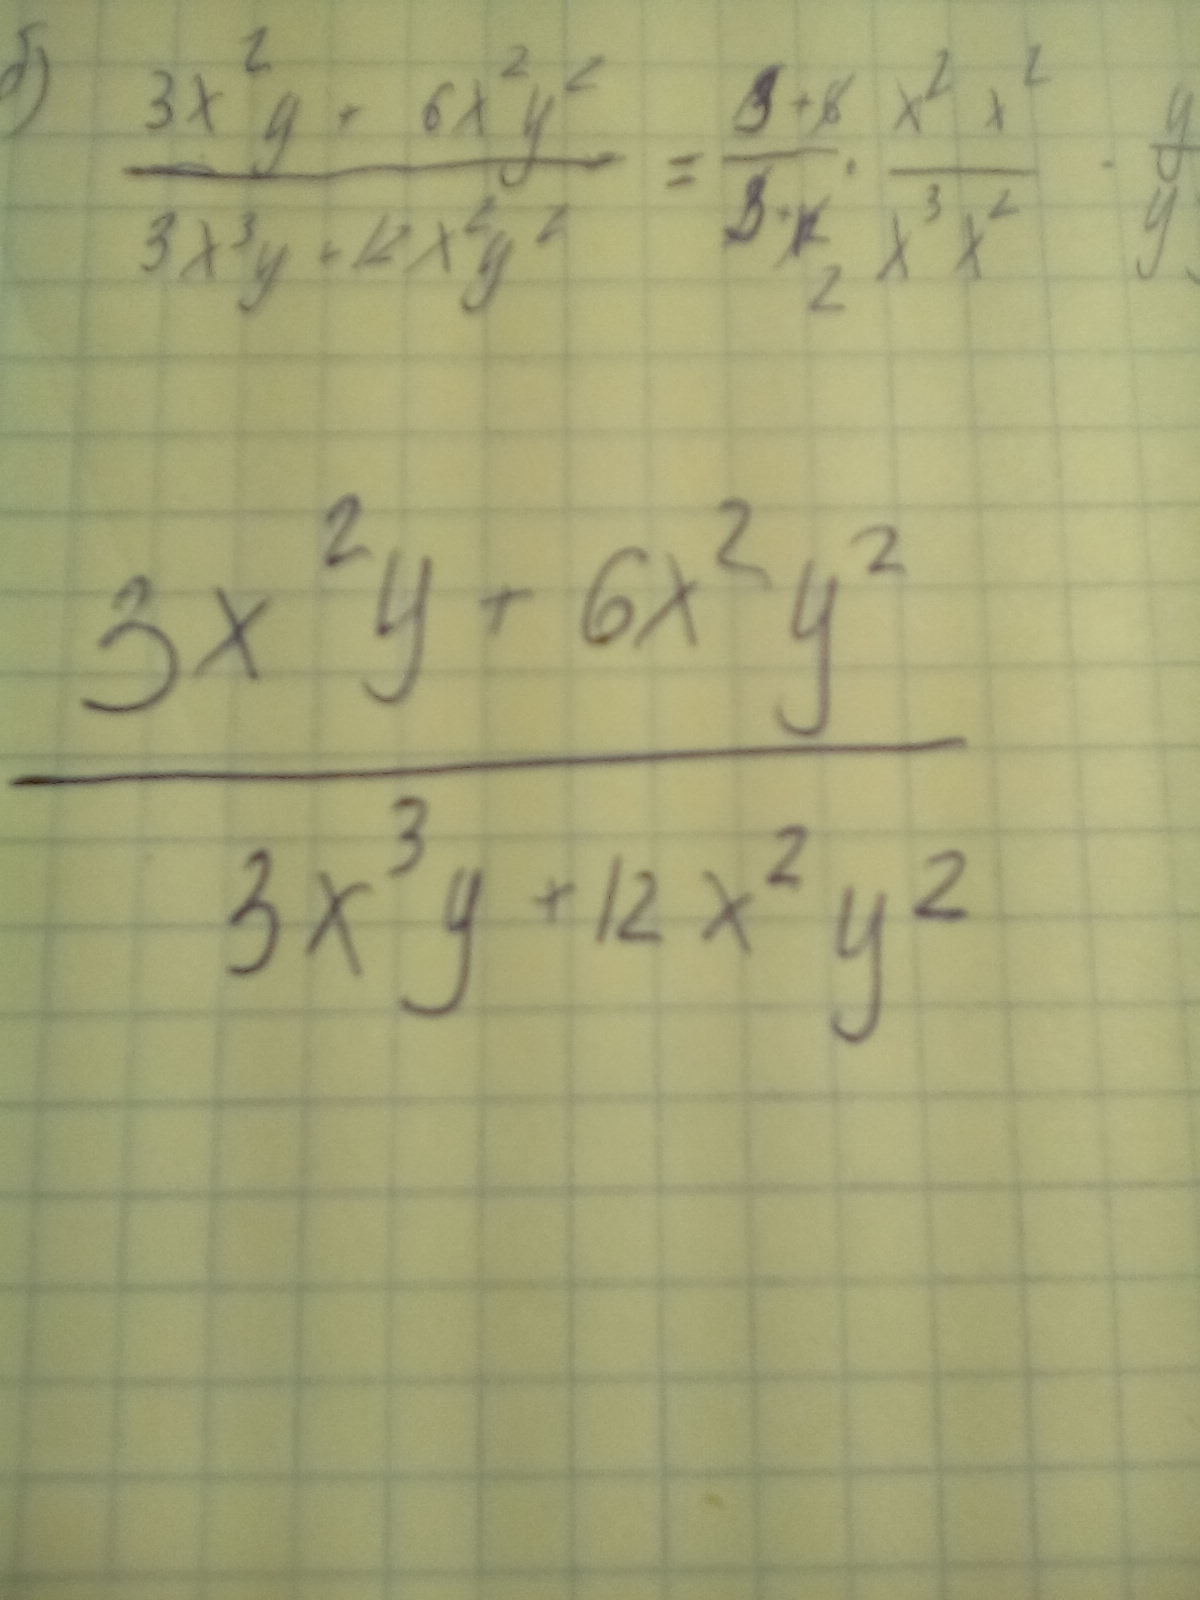 б) 3x²y + 6x²y² / 3x³y + 12x²y² = 3+6 / 3+12 2 · x² x² / x³ x² · y / y
3x²y + 6x²y²
3x³y + 12x²y²